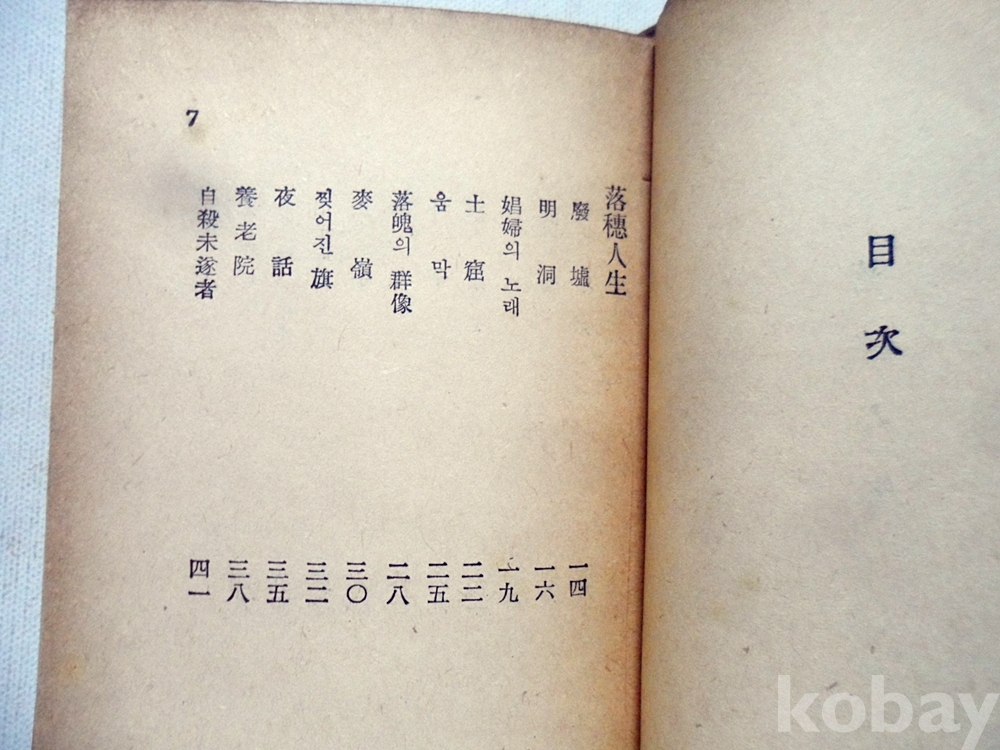 目次
落穗人生
廢墟 一四
明洞 一六
娼婦의 노래 一九
土窟 二二
움막 二五
落魄의 群像 二八
麥嶺 三〇
찢어진 旗 三二
夜話 三五
養老院 三八
自殺未遂者 四一
7
kobay